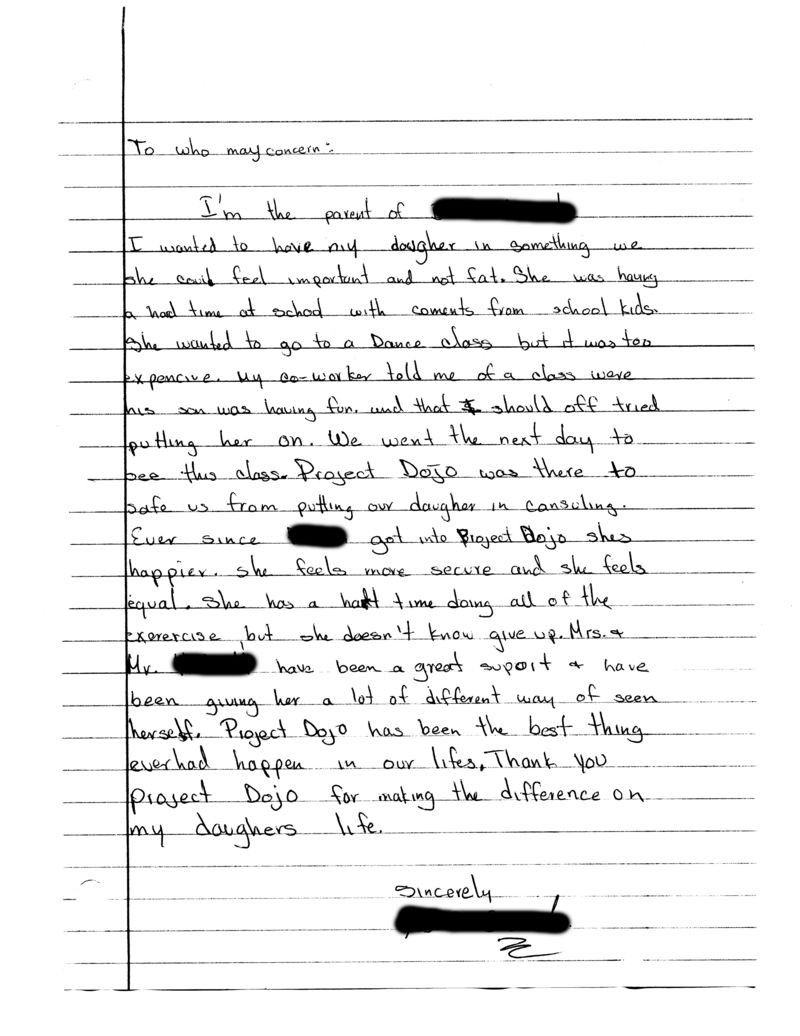 To who may concern:
I'm the parent of
I wanted to have my daugher in something we
she could feel important and not fat. She was having
a had time at school with coments from school kids.
She wanted to go to a Dance class but it was too
expencive. My co-worker told me of a class were
his son was having fun. and that I should off tried
putting her on. We went the next day to
see this class. Project Dojo was there to
safe us from putting our daugher in cansuling.
Ever since got into Project Dojo shes
happier. she feels more secure and she feels
equal. She has a hart time doing all of the
exerercise, but she doesn't know give up. Mrs. &
Mr. have been a great suport & have
been giving her a lot of different way of seen
herself. Project Dojo has been the best thing
ever had happen in our lifes. Thank you
Project Dojo for making the difference on
my daughers life.
Sincerely